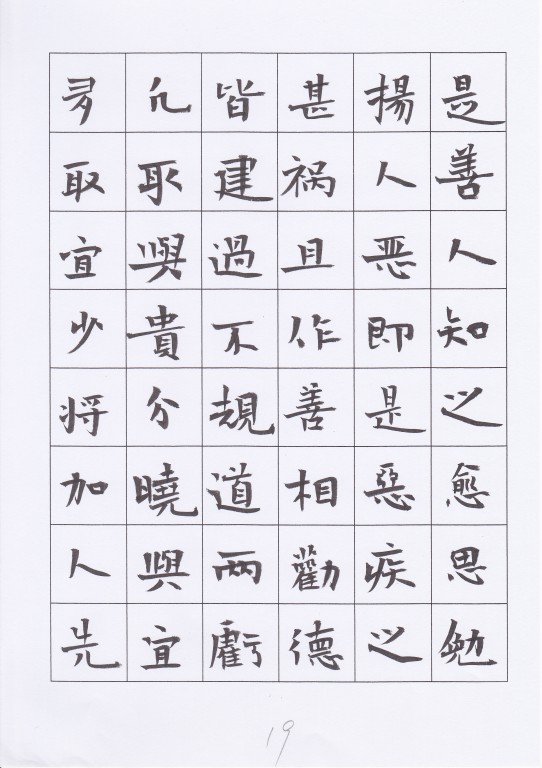 是善人知之愈思勉
揚人恶即是惡疾之
甚祸且作善相勸德
皆建過不規道两虧
凡取與貴分曉與宜
多取宜少将加人先
19